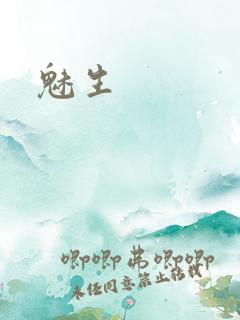 魅生
唧唧弗唧唧
未经同意禁止转载